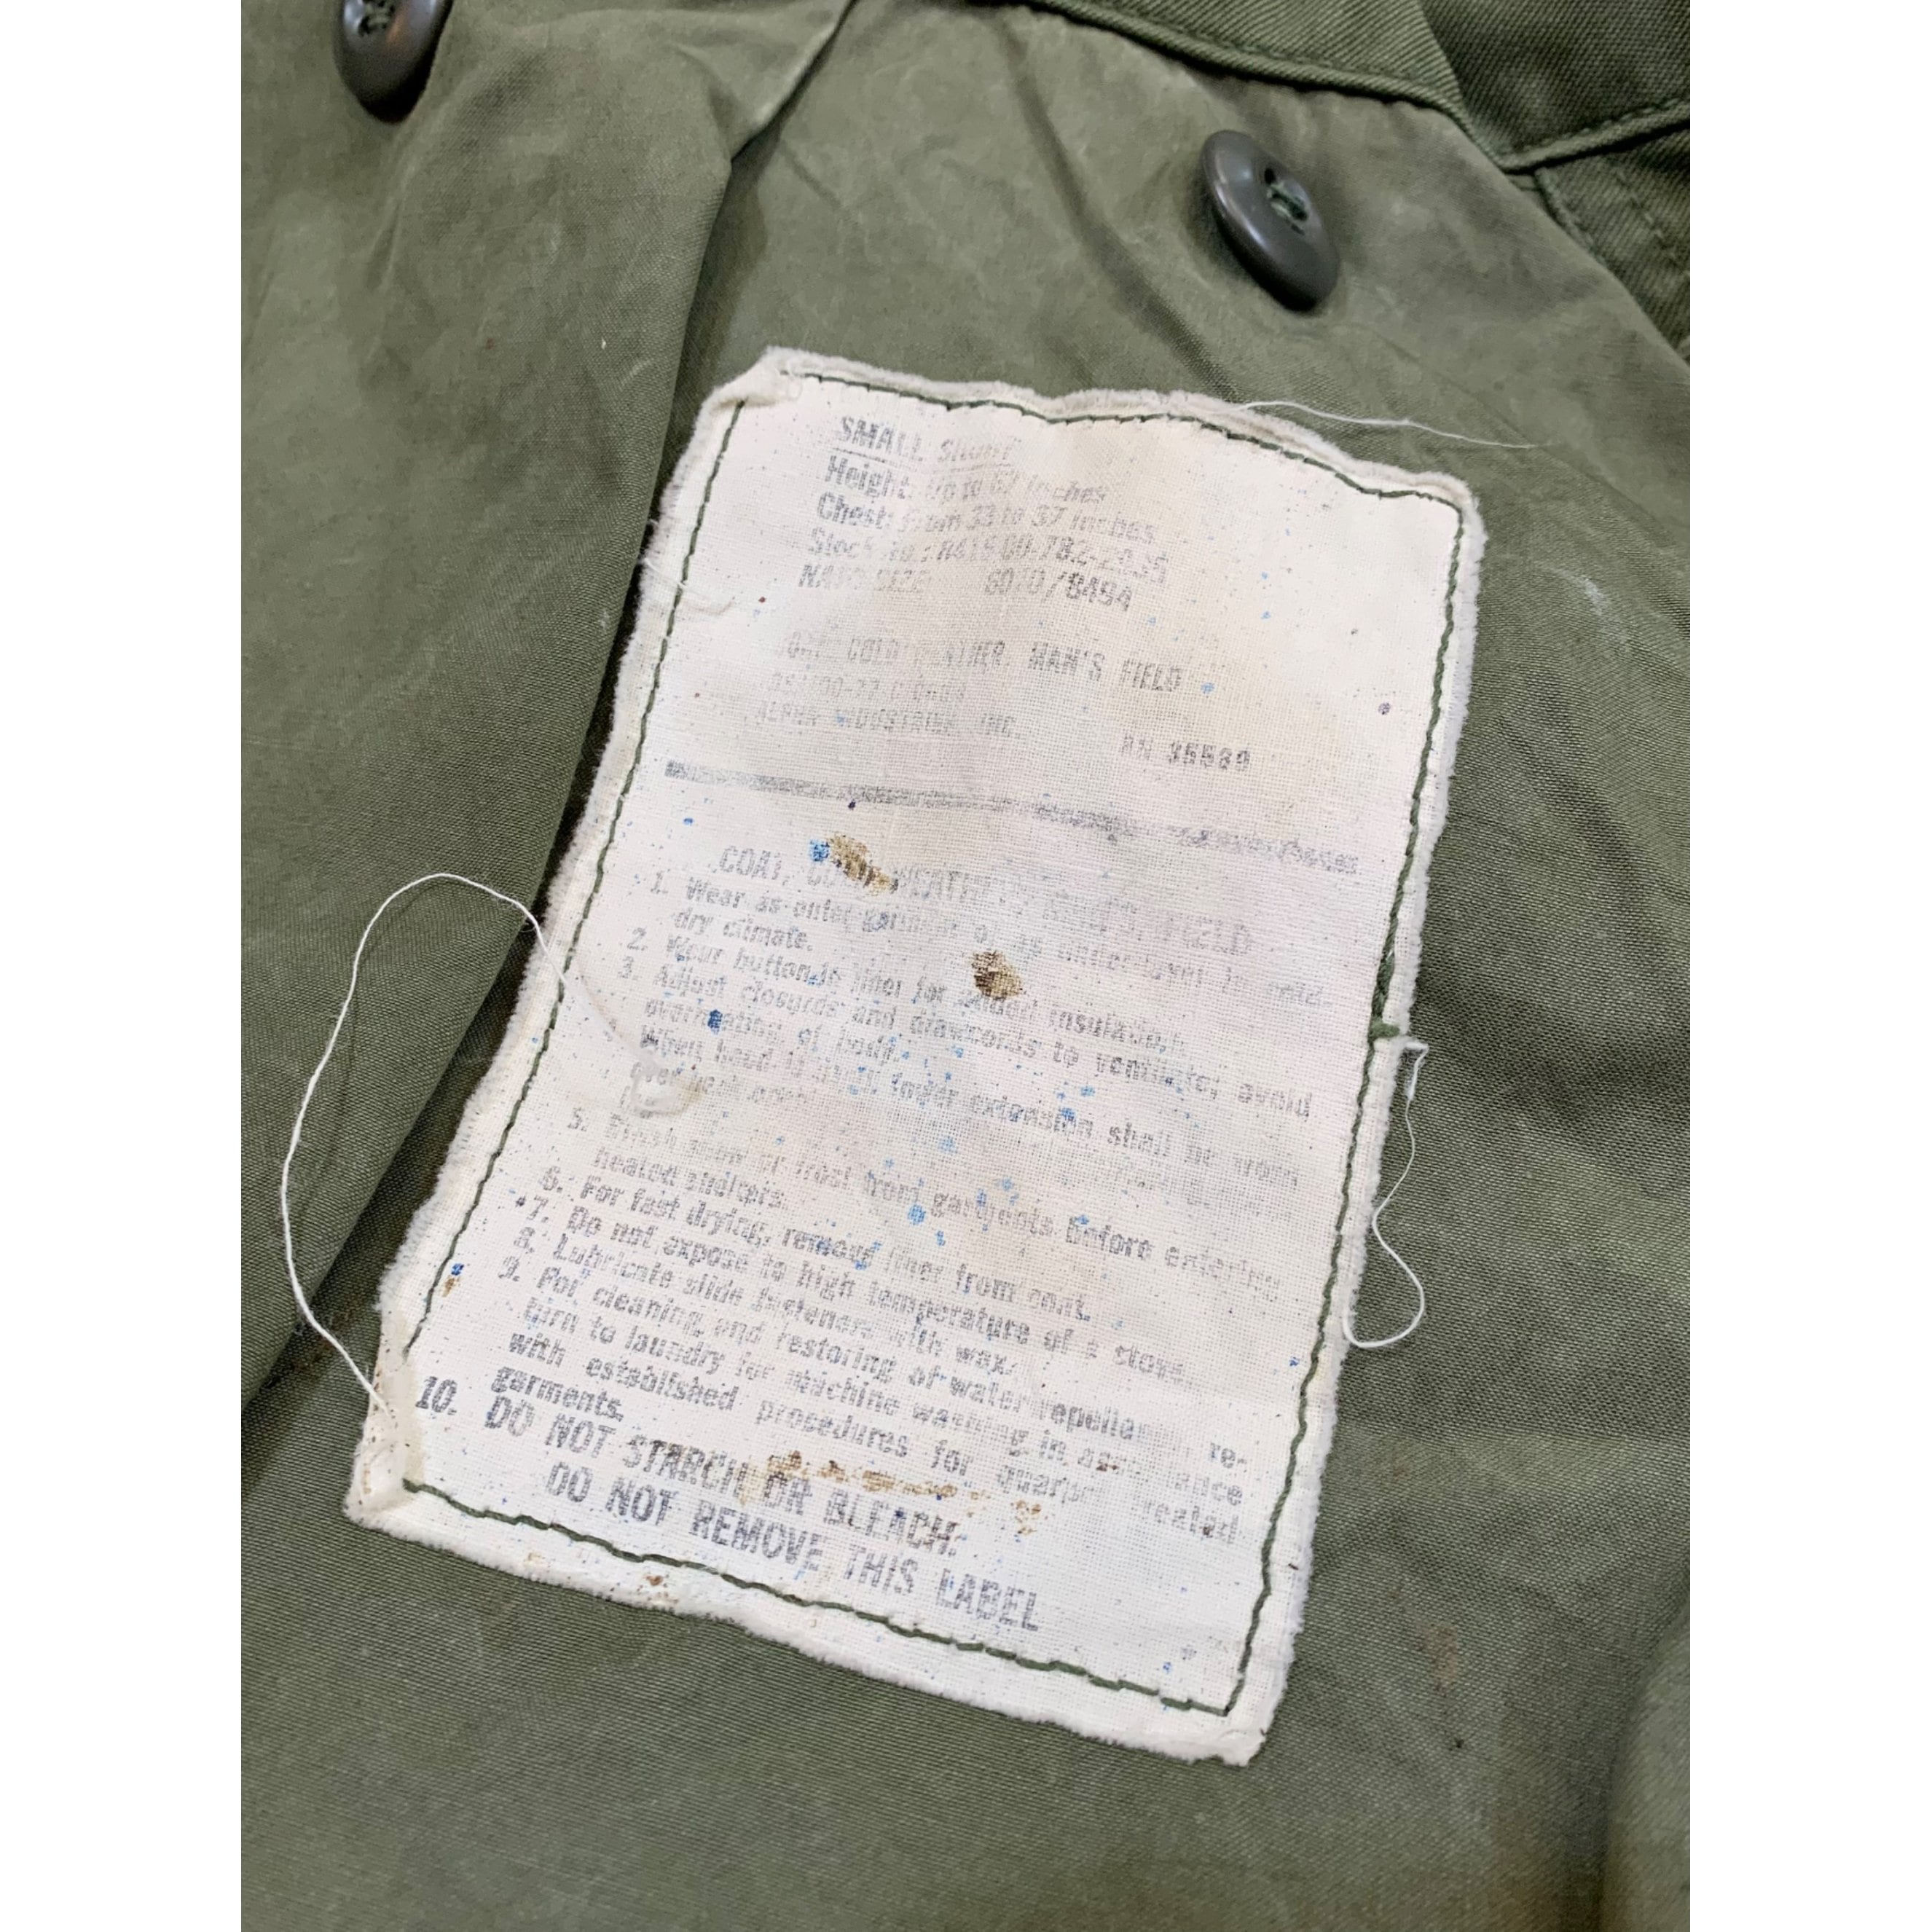 SMALL SHORT
Height: Up to 67 inches
Chest: From 33 to 37 inches
Stock No.:
NATO SIZE /8494
COLD WEATHER, MAN'S FIELD
ALPHA INDUSTRIES, INC.
COAT, COLD WEATHER, FIELD
1. Wear as outer garment or as
dry climate.
2. Wear button in liner for added insulation.
3. Adjust closures and drawcords to ventilate; avoid
overheating of body.
4. When hood is extension shall be worn
over
5. Brush snow or frost from garments before entering
heated shelters.
6. For fast drying, remove liner from coat.
7. Do not expose to high temperature of a stove.
8. Lubricate slide fasteners with wax.
9. For cleaning and restoring of water repellency, re-
turn to laundry for machine washing in accordance
with established procedures for treated
garments.
10. DO NOT STARCH OR BLEACH.
DO NOT REMOVE THIS LABEL